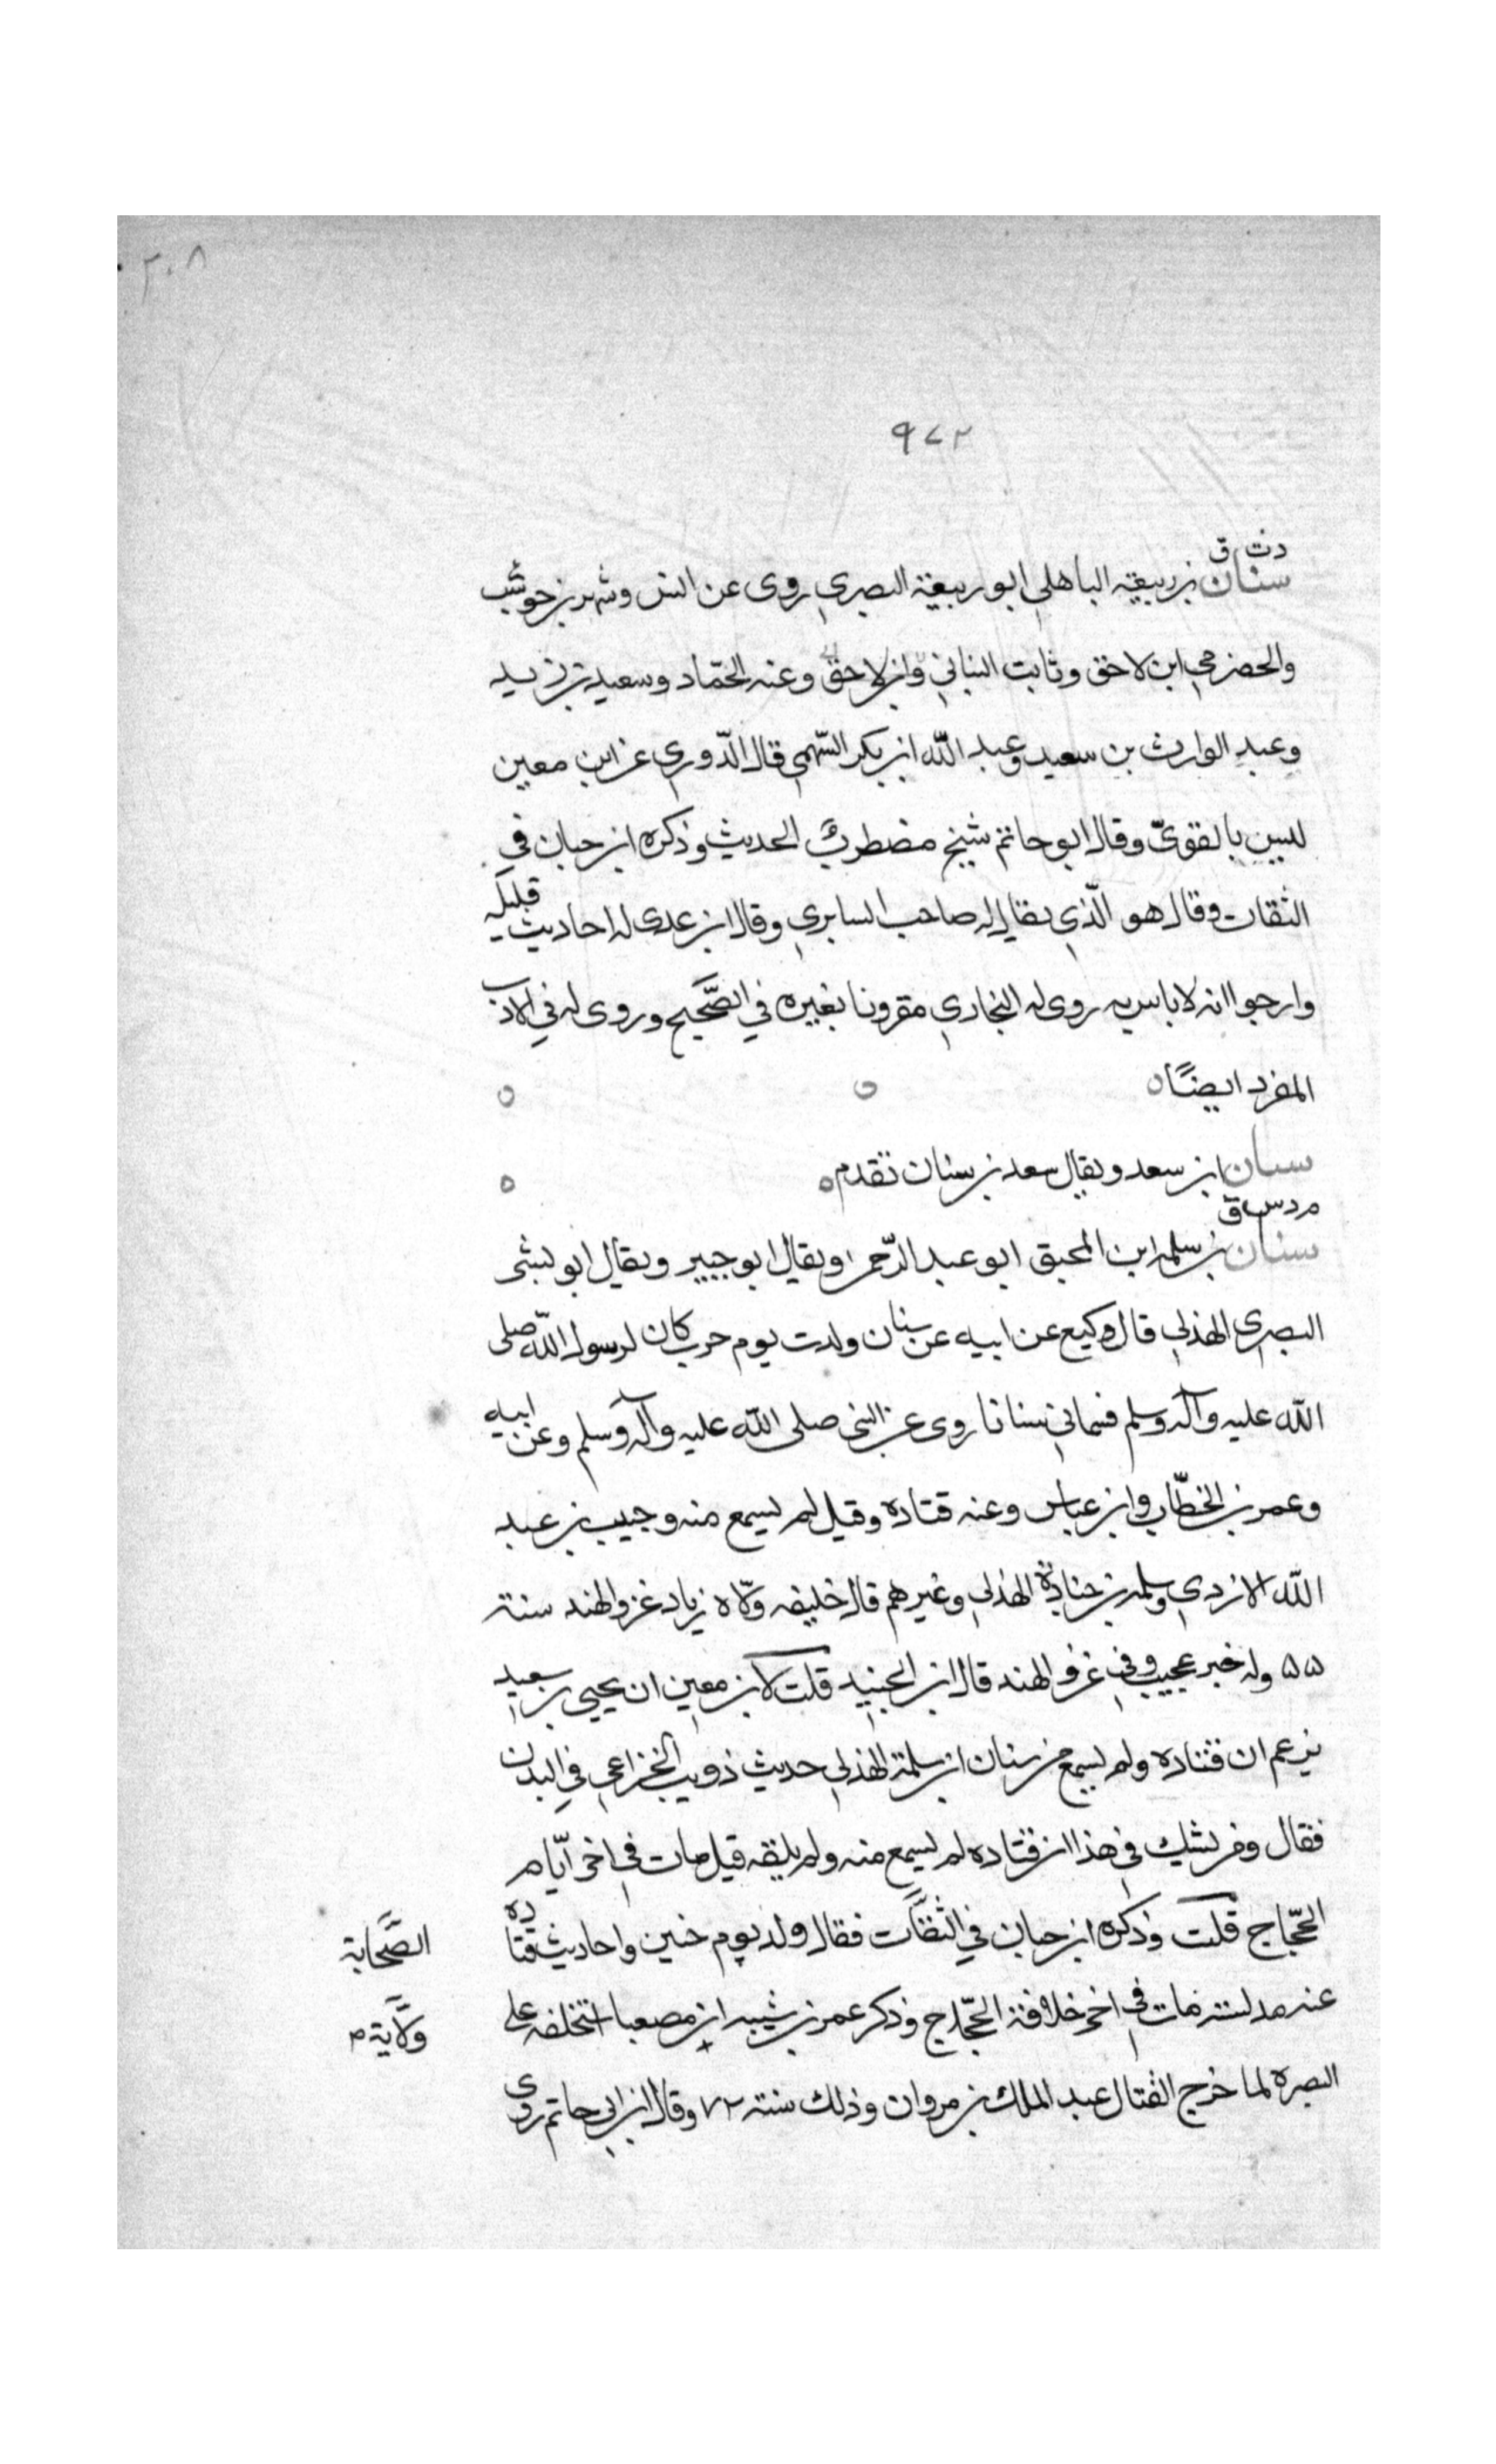 ٢٠٨
٩٧٢
د ت ق
سنان بن ربيعة الباهلي ابو ربيعة البصري روى عن انس وشهر بن حوشب
والحضرمي ابن لاحق وثابت البناني وابن لاحق وعنه الحمّاد وسعيد بن زيد
وعبد الوارث بن سعيد وعبد الله ابن بكر السّهمي قال الدّوري عن ابن معين
ليس بالقويّ وقال ابو حاتم شيخ مضطرب الحديث وذكره ابن حبان في
الثقات وقال هو الّذي يقال له صاحب السابري وقال ابن عدى له احاديث قليله
وارجوا انه لا باس به روى له البخاري مقرونا بغيره في الصّحيح وروى له في الادب
المفرد ايضًا
سنان ابن سعد ويقال سعد بن سنان تقدم
م د س ق
سنان بن سلمه ابن المحبق ابو عبد الرّحمن ويقال ابو جبير ويقال ابو بشر
البصري الهذلي قال وكيع عن ابيه عن سنان ولدت يوم حرب كان لرسول الله صلى
الله عليه وآله وسلم فسماني سنانا روى عن النبى صلى الله عليه وآله وسلم وعن ابيه
وعمر بن الخطّاب وابن عباس وعنه قتاده وقيل لم يسمع منه وحبيب بن عبد
الله الازدي وسلمه بن جنادة الهذلي وغيرهم قال خليفه ولّاه زياد غزو الهند سنة
٥٥ وله خبر عجيب في غزو الهند قال ابن الجنيد قلت لابن معين ان يحيى بن سعيد
يزعم ان قتاده ولم يسمع من سنان ابن سلمة الهذلي حديث ذويب الخزاعي في البدن
فقال ومن يشك في هذا ان قتاده لم يسمع منه ولم يلقه قيل مات في اخر ايّام
الحجّاج قلت وذكره ابن حبان في الثقات فقال ولد يوم حنين واحاديث قتاده
الصّحابة
عنه مدلسة مات في اخر خلافة الحجّاج وذكر عمر بن شيبه ان مصعبا استخلفه على
ولاية م
البصره لما خرج لقتال عبد الملك بن مروان وذلك سنة ٧٢ وقال ابن ابي حاتم روى